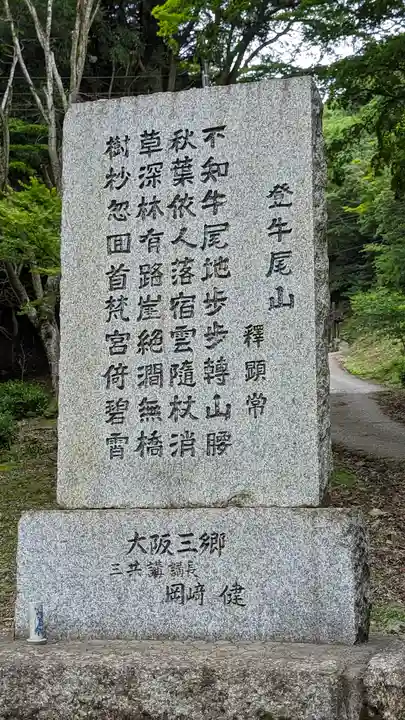 登牛尾山
釋顕常
不知牛尾地歩歩轉山腰
秋葉依人落宿雲隨杖消
草深林有路崖絶澗無橋
樹杪忽囬首梵宮倚碧霄
大阪三郷
三共講講長
岡﨑健